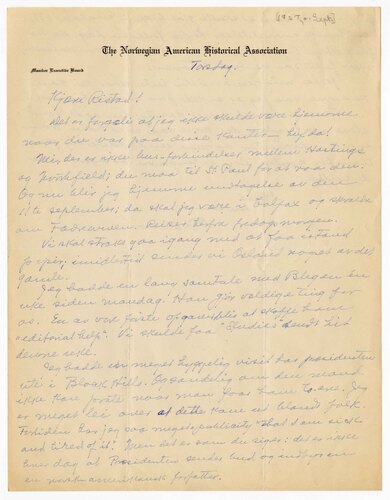 The Norwegian American Historical Association
Member Executive Board
Torsdag.
Kjære Ristad!
Det er forgalis at jeg ikke skulde være hjemme
naar du var paa disse kanter
Nei, der er ikke bus-forbindelser mellem Hastings
og Northfield; du maa til St Paul for at naa den.
Og nu blir jeg hjemme undtagelse av den
11te september; da skal jeg være i Colfax og snakke
om Færøerne. Reiser herfra fredag morgen.
Vi skal straks gaa igang med at faa istand
imidlertid sendes vi Osland noget av det
gamle.
Jeg hadde en lang samtale med Blegen en
uke siden mandag. Han gjør vældige ting for
os. En av vore første opgaver blir at skaffe ham
"editorial help". Vi skulde faa "Studies" sendt hit
denne uke.
Jeg hadde en meget hyggelig visit hos presidenten
ute i Black Hills. Besynderlig om den mand
ikke kan foretes naar man hos ham. Jeg
er meget lei over at dette kom ut blandt folk.
Forresten har jeg saa megen publicity that I am sick
and tired of it. Men det er som du siger: det er ikke
hver dag at Presidenten sender bud og indbyr en
en norsk-amerikansk forfatter.